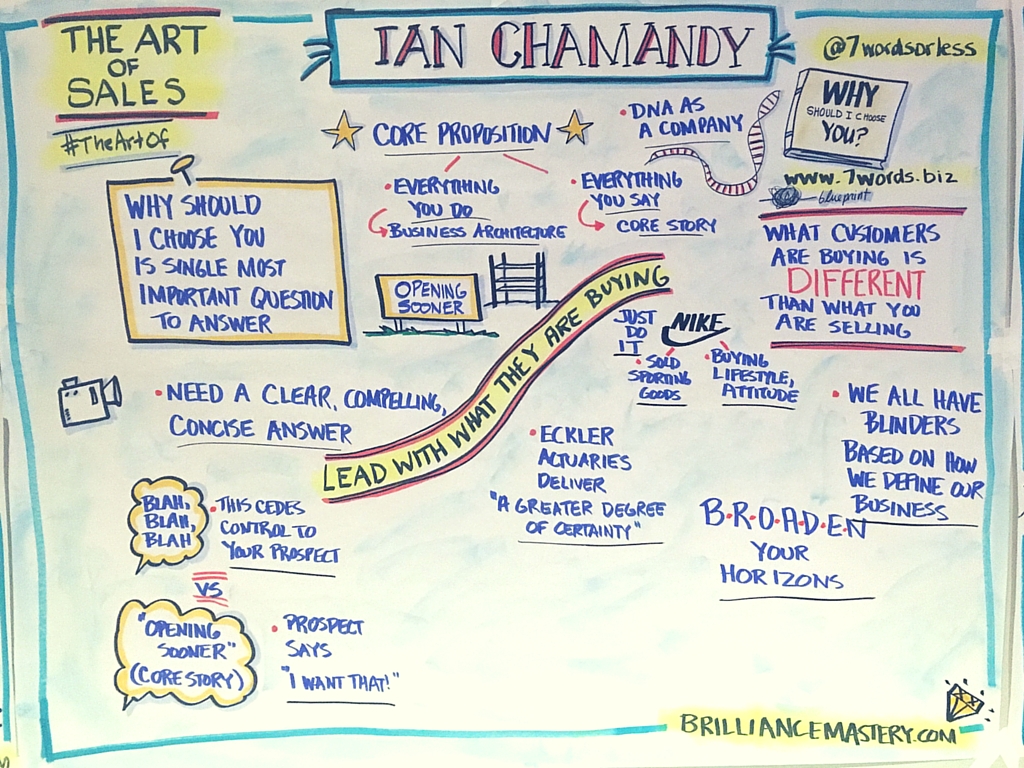 THE ART
OF
SALES
#TheArtOf
IAN CHAMANDY
@7wordsorless
WHY
SHOULD I CHOOSE
YOU?
www.7words.biz
blueprint
CORE PROPOSITION
• EVERYTHING
YOU DO
BUSINESS ARCHITECTURE
• EVERYTHING
YOU SAY
CORE STORY
• DNA AS
A COMPANY
WHY SHOULD
I CHOOSE YOU
IS SINGLE MOST
IMPORTANT QUESTION
TO ANSWER
OPENING
SOONER
WHAT CUSTOMERS
ARE BUYING IS
DIFFERENT
THAN WHAT YOU
ARE SELLING
LEAD WITH WHAT THEY ARE BUYING
JUST
DO
IT
NIKE
• SOLD
SPORTING
GOODS
• BUYING
LIFESTYLE,
ATTITUDE
• NEED A CLEAR, COMPELLING,
CONCISE ANSWER
• WE ALL HAVE
BLINDERS
BASED ON HOW
WE DEFINE OUR
BUSINESS
• ECKLER
ACTUARIES
DELIVER
"A GREATER DEGREE
OF CERTAINTY"
B•R•O•A•D•E•N
YOUR
HORIZONS
BLAH,
BLAH,
BLAH
• THIS CEDES
CONTROL TO
YOUR PROSPECT
VS
"OPENING
SOONER"
(CORE STORY)
• PROSPECT
SAYS
"I WANT THAT!"
BRILLIANCEMASTERY.COM